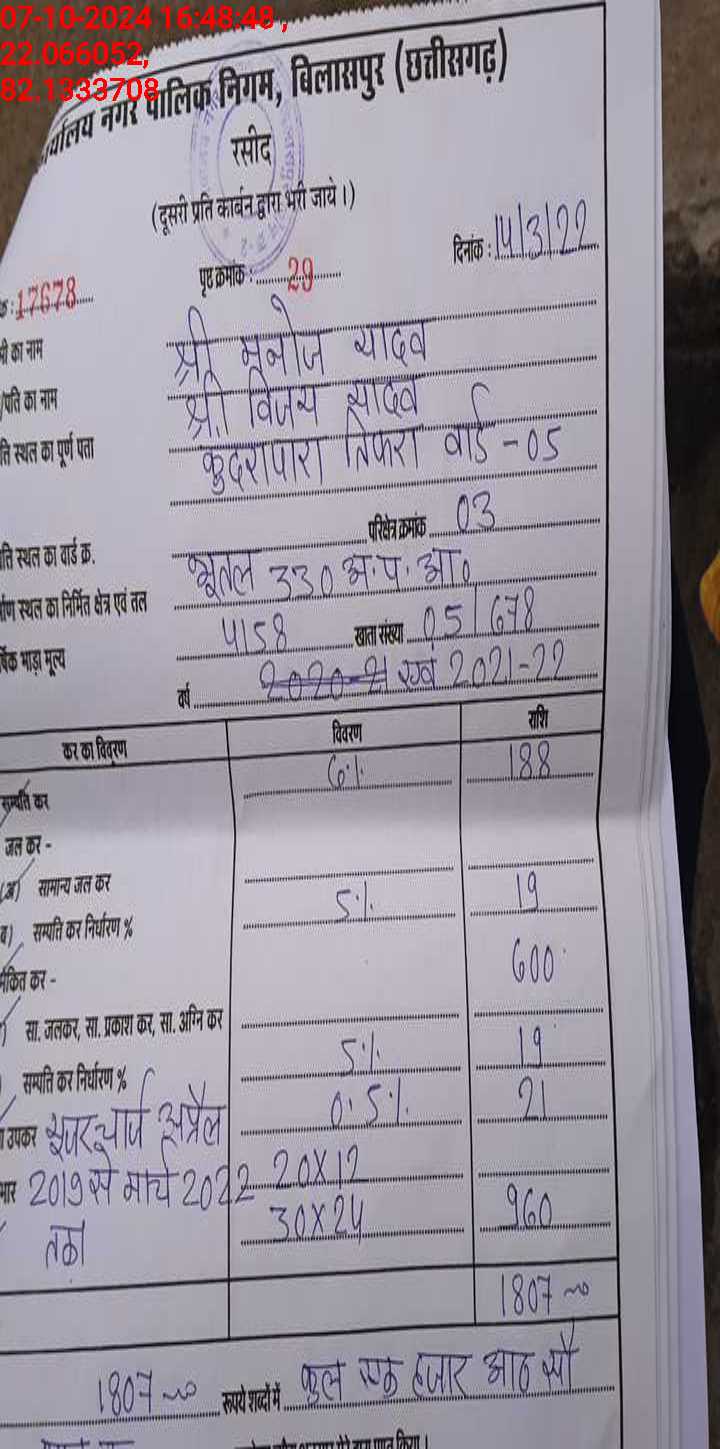 07-10-2024 16:48:48 ,
22.066052,
82.1333708
र्यालय नगर पालिक निगम, बिलासपुर (छत्तीसगढ़)
रसीद
(दूसरी प्रति कार्बन द्वारा भरी जाये।)
दिनांक : 14/3/22
17678 पृष्ठ क्रमांक : 29
मी का नाम श्री मनोज यादव
/पति का नाम श्री विजय यादव
ति स्थल का पूर्ण पता कुदरापारा तिफरा वार्ड - 05
ति स्थल का वार्ड क्र. परिक्षेत्र क्रमांक 03
र्माण स्थल का निर्मित क्षेत्र एवं तल भूतल 330 अ.प.आ०
र्षिक भाड़ा मूल्य 4158 खाता संख्या 05/678
वर्ष 2020-21 एवं 2021-22
कर का विवरण विवरण राशि
सम्पति कर 6% 188
जल कर -
(अ) सामान्य जल कर
ब) सम्पति कर निर्धारण % 5% 19
मेकित कर - 600
सा. जलकर, सा. प्रकाश कर, सा. अग्नि कर
सम्पति कर निर्धारण % 5% 19
उपकर यूजर चार्ज अप्रैल 0.5% 21
भार 2019 से मार्च 2022 20X12
तक 30X24 960
1807
1807 रूपये शब्दों में कुल एक हजार आठ सौ